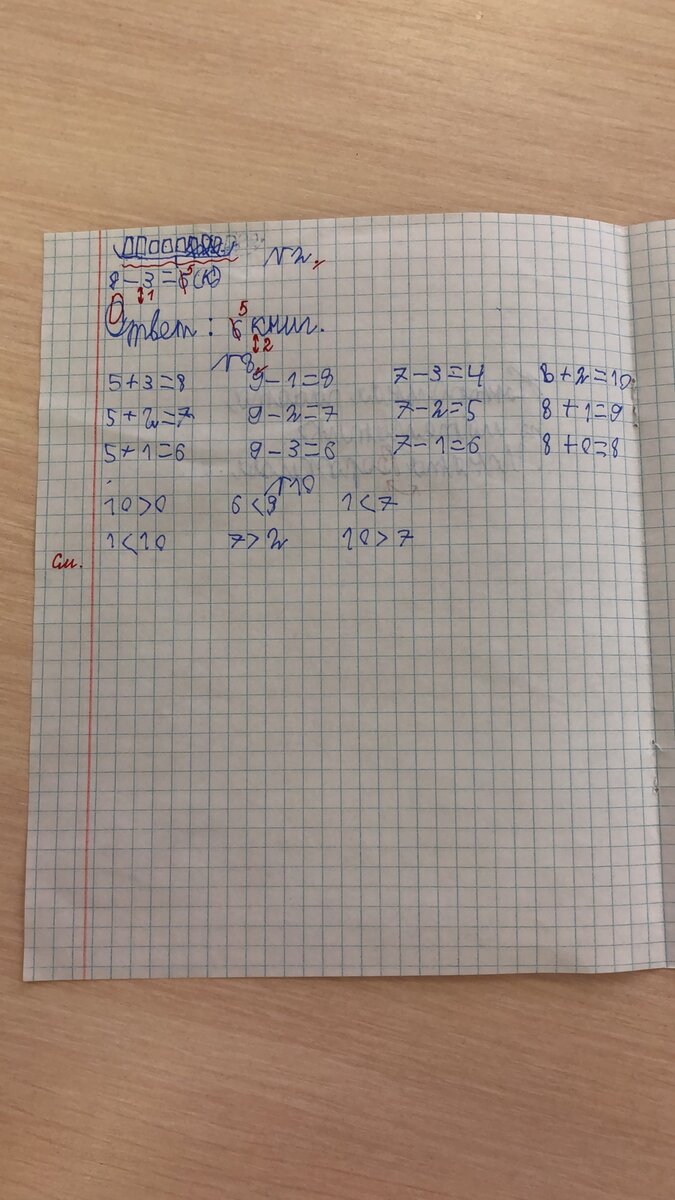 N2.
8-3=6 5(К)
↕1
Ответ: 6 5 книг.
↕2
N8.
5+3=8 9-1=8 7-3=4 8+2=10
5+2=7 9-2=7 7-2=5 8+1=9
5+1=6 9-3=6 7-1=6 8+0=8
N10
10>0 6<9 1<7
1<10 7>2 10>7
См.